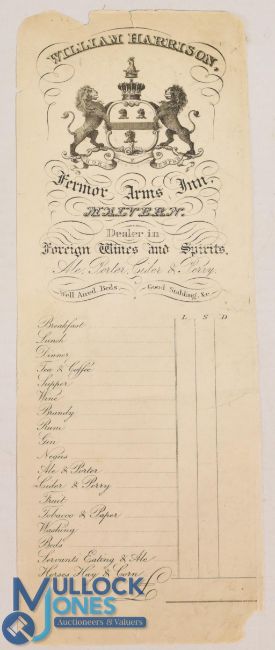 WILLIAM HARRISON,
Fermor Arms Inn.
MALVERN.
Dealer in
Foreign Wines and Spirits,
Ale, Porter, Cider & Perry.
Well Aired Beds. Good Stabling, &c.
L S D
Breakfast
Lunch
Dinner
Tea & Coffee
Supper
Wine
Brandy
Rum
Gin
Negus
Ale & Porter
Cider & Perry
Fruit
Tobacco & Paper
Washing
Beds
Servants Eating & Ale
Horses Hay & Corn
£
MULLOCK
JONES
Auctioneers & Valuers